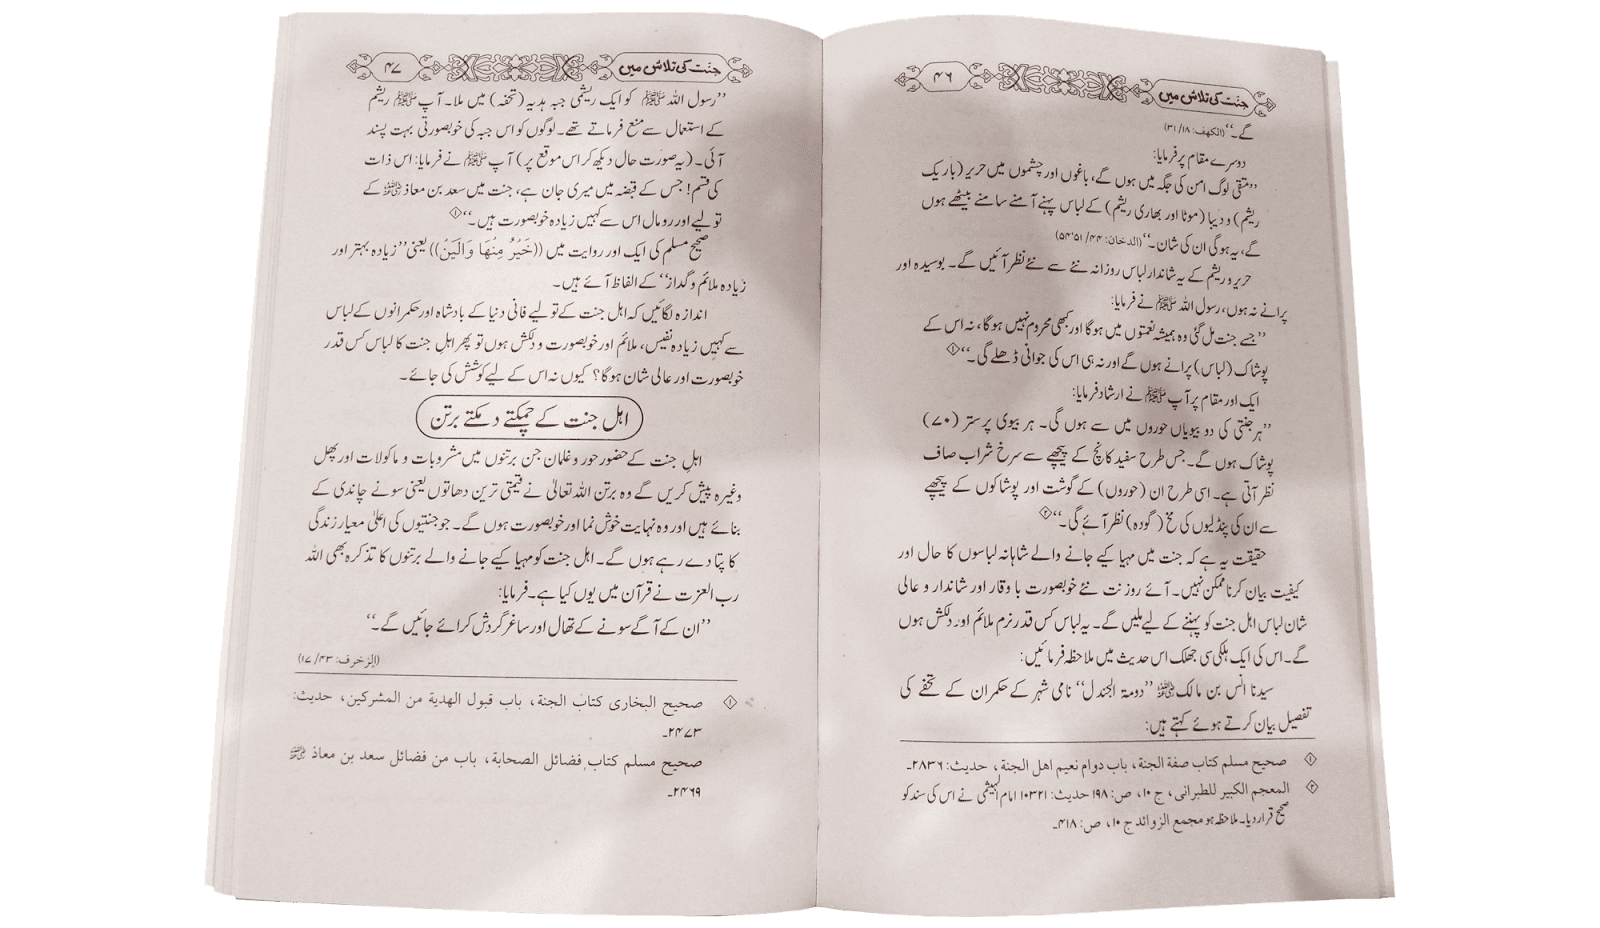 جنت کی تلاش میں
۴۶
گے۔‘‘ (الکھف: ۱۸/ ۳۱)
دوسرے مقام پر فرمایا:
’’متقی لوگ امن کی جگہ میں ہوں گے، باغوں اور چشموں میں حریر (باریک
ریشم) و دیبا (موٹا اور بھاری ریشم) کے لباس پہنے آمنے سامنے بیٹھے ہوں
گے، یہ ہوگی ان کی شان۔‘‘ (الدخان: ۴۴/ ۵۱، ۵۴)
حریر و ریشم کے یہ شاندار لباس روزانہ نئے سے نئے نظر آئیں گے۔ بوسیدہ اور
پرانے نہ ہوں، رسول اللہ ﷺ نے فرمایا:
’’جسے جنت مل گئی وہ ہمیشہ نعمتوں میں ہوگا اور کبھی محروم نہیں ہوگا، نہ اس کے
پوشاک (لباس) پرانے ہوں گے اور نہ ہی اس کی جوانی ڈھلے گی۔‘‘ ۱
ایک اور مقام پر آپ ﷺ نے ارشاد فرمایا:
’’ہر جنتی کی دو بیویاں حوروں میں سے ہوں گی۔ ہر بیوی پر ستر (۷۰)
پوشاک ہوں گے۔ جس طرح سفید کانچ کے پیچھے سے سرخ شراب صاف
نظر آتی ہے۔ اسی طرح ان (حوروں) کے گوشت اور پوشاکوں کے پیچھے
سے ان کی پنڈلیوں کی مخ (گودہ) نظر آئے گی۔‘‘ ۲
حقیقت یہ ہے کہ جنت میں مہیا کیے جانے والے شاہانہ لباسوں کا حال اور
کیفیت بیان کرنا ممکن نہیں۔ آئے روز نت نئے خوبصورت با وقار اور شاندار و عالی
شان لباس اہل جنت کو پہننے کے لیے ملیں گے۔ یہ لباس کس قدر نرم ملائم اور دلکش ہوں
گے۔ اس کی ایک ہلکی سی جھلک اس حدیث میں ملاحظہ فرمائیں:
سیدنا انس بن مالک ؓ ’’دومۃ الجندل‘‘ نامی شہر کے حکمران کے تحفے کی
تفصیل بیان کرتے ہوئے کہتے ہیں:
۱ صحیح مسلم کتاب صفة الجنة، باب دوام نعیم اهل الجنة، حدیث: ۲۸۳۶۔
۲ المعجم الکبیر للطبرانی، ج ۱۰، ص: ۱۹۸ حدیث: ۱۰۳۲۱ امام الہیثمی نے اس کی سند کو
صحیح قرار دیا۔ ملاحظہ ہو مجمع الزوائد ج ۱۰، ص: ۴۱۸۔
جنت کی تلاش میں
۴۷
’’رسول اللہ ﷺ کو ایک ریشمی جبہ ہدیہ (تحفہ) میں ملا۔ آپ ﷺ ریشم
کے استعمال سے منع فرماتے تھے۔ لوگوں کو اس جبہ کی خوبصورتی بہت پسند
آئی۔ (یہ صورت حال دیکھ کر اس موقع پر) آپ ﷺ نے فرمایا: اس ذات
کی قسم! جس کے قبضہ میں میری جان ہے، جنت میں سعد بن معاذ ؓ کے
تولیے اور رومال اس سے کہیں زیادہ خوبصورت ہیں۔‘‘ ۱
صحیح مسلم کی ایک اور روایت میں ((خَیْرٌ مِنْهَا وَاَلْیَنُ)) یعنی ’’زیادہ بہتر اور
زیادہ ملائم و گداز‘‘ کے الفاظ آئے ہیں۔
اندازہ لگائیں کہ اہل جنت کے تولیے فانی دنیا کے بادشاہ اور حکمرانوں کے لباس
سے کہیں زیادہ نفیس، ملائم اور خوبصورت و دلکش ہوں تو پھر اہلِ جنت کا لباس کس قدر
خوبصورت اور عالی شان ہوگا؟ کیوں نہ اس کے لیے کوشش کی جائے۔
اہل جنت کے چمکتے دمکتے برتن
اہلِ جنت کے حضور حور و غلمان جن برتنوں میں مشروبات و ماکولات اور پھل
وغیرہ پیش کریں گے وہ برتن اللہ تعالیٰ نے قیمتی ترین دھاتوں یعنی سونے چاندی کے
بنائے ہیں اور وہ نہایت خوش نما اور خوبصورت ہوں گے۔ جو جنتیوں کی اعلیٰ معیار زندگی
کا پتا دے رہے ہوں گے۔ اہل جنت کو مہیا کیے جانے والے برتنوں کا تذکرہ بھی اللہ
رب العزت نے قرآن میں یوں کیا ہے۔ فرمایا:
’’ان کے آگے سونے کے تھال اور ساغر گردش کرائے جائیں گے۔‘‘
(الزخرف: ۴۳/ ۱۷)
۱ صحیح البخاری کتاب الجنة، باب قبول الهدیة من المشرکین، حدیث:
۲۴۷۳۔
صحیح مسلم کتاب فضائل الصحابة، باب من فضائل سعد بن معاذ ؓ
۲۴۶۹۔